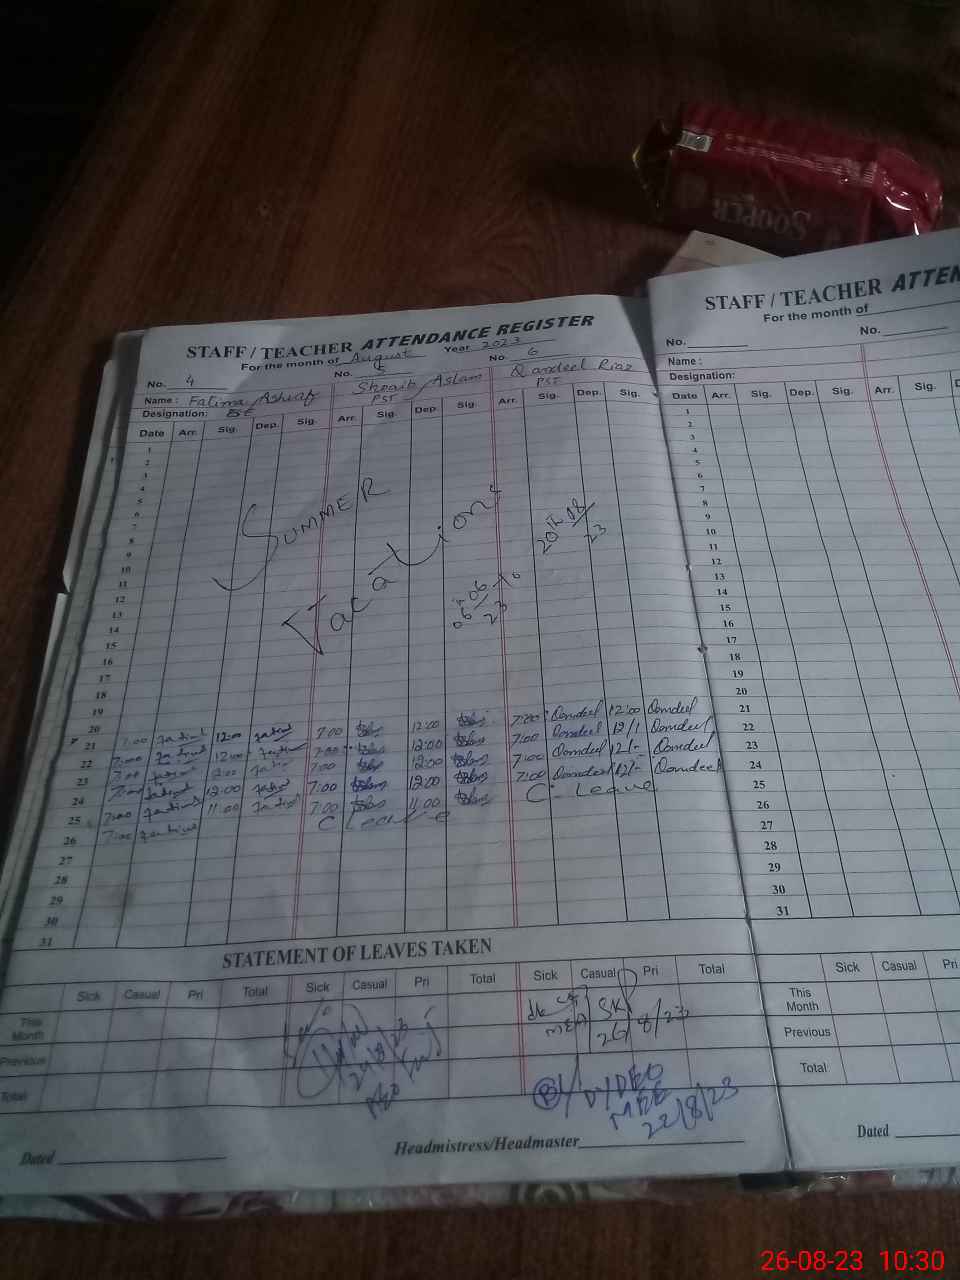 SOOPER
STAFF / TEACHER ATTENDANCE REGISTER
For the month of August Year 2023
No. 4 No. 5 No. 6
Name : Fatima Ashraf Shoaib Aslam Qandeel Riaz
Designation: ESE PST PST
Date Arr. Sig. Dep. Sig. Arr. Sig. Dep. Sig. Arr. Sig. Dep. Sig.
1
2
3
4
5
6
7
8
9
10
11
12
13
14
15
16
17
18
19
20
21
22
23
24
25
26
27
28
29
30
31
SUMMER
Vacations
06/06/23 to 20th/08/23
7:00 12:00 7:00 12:00 7:00 Qandeel 12:00 Qandeel
7:00 12:00 7:00 12:00 7:00 Qandeel 12/- Qandeel
7:00 12:00 7:00 12:00 7:00 Qandeel 12/- Qandeel
7:00 12:00 7:00 12:00 7:00 Qandeel 12/- Qandeel
7:00 11:00 7:00 11:00 C. Leave
7:00 C Leave
STATEMENT OF LEAVES TAKEN
Sick Casual Pri Total Sick Casual Pri Total Sick Casual Pri Total
This Month
Previous
Total
MEA
26/8/23
24/8/23
AEO
DY DEO
MEE
22/8/23
Dated
Headmistress/Headmaster
STAFF / TEACHER ATTEN
For the month of
No. No.
Name :
Designation:
Date Arr. Sig. Dep. Sig. Arr. Sig. D
1
2
3
4
5
6
7
8
9
10
11
12
13
14
15
16
17
18
20
21
22
23
24
25
26
27
28
29
30
31
Sick Casual Pri
This Month
Previous
Total
Dated
26-08-23 10:30